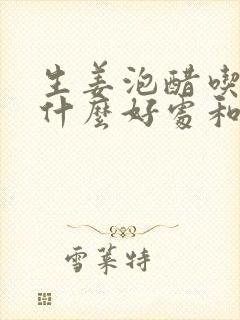 生姜泡醋喫
什麼好處和
雪萊特